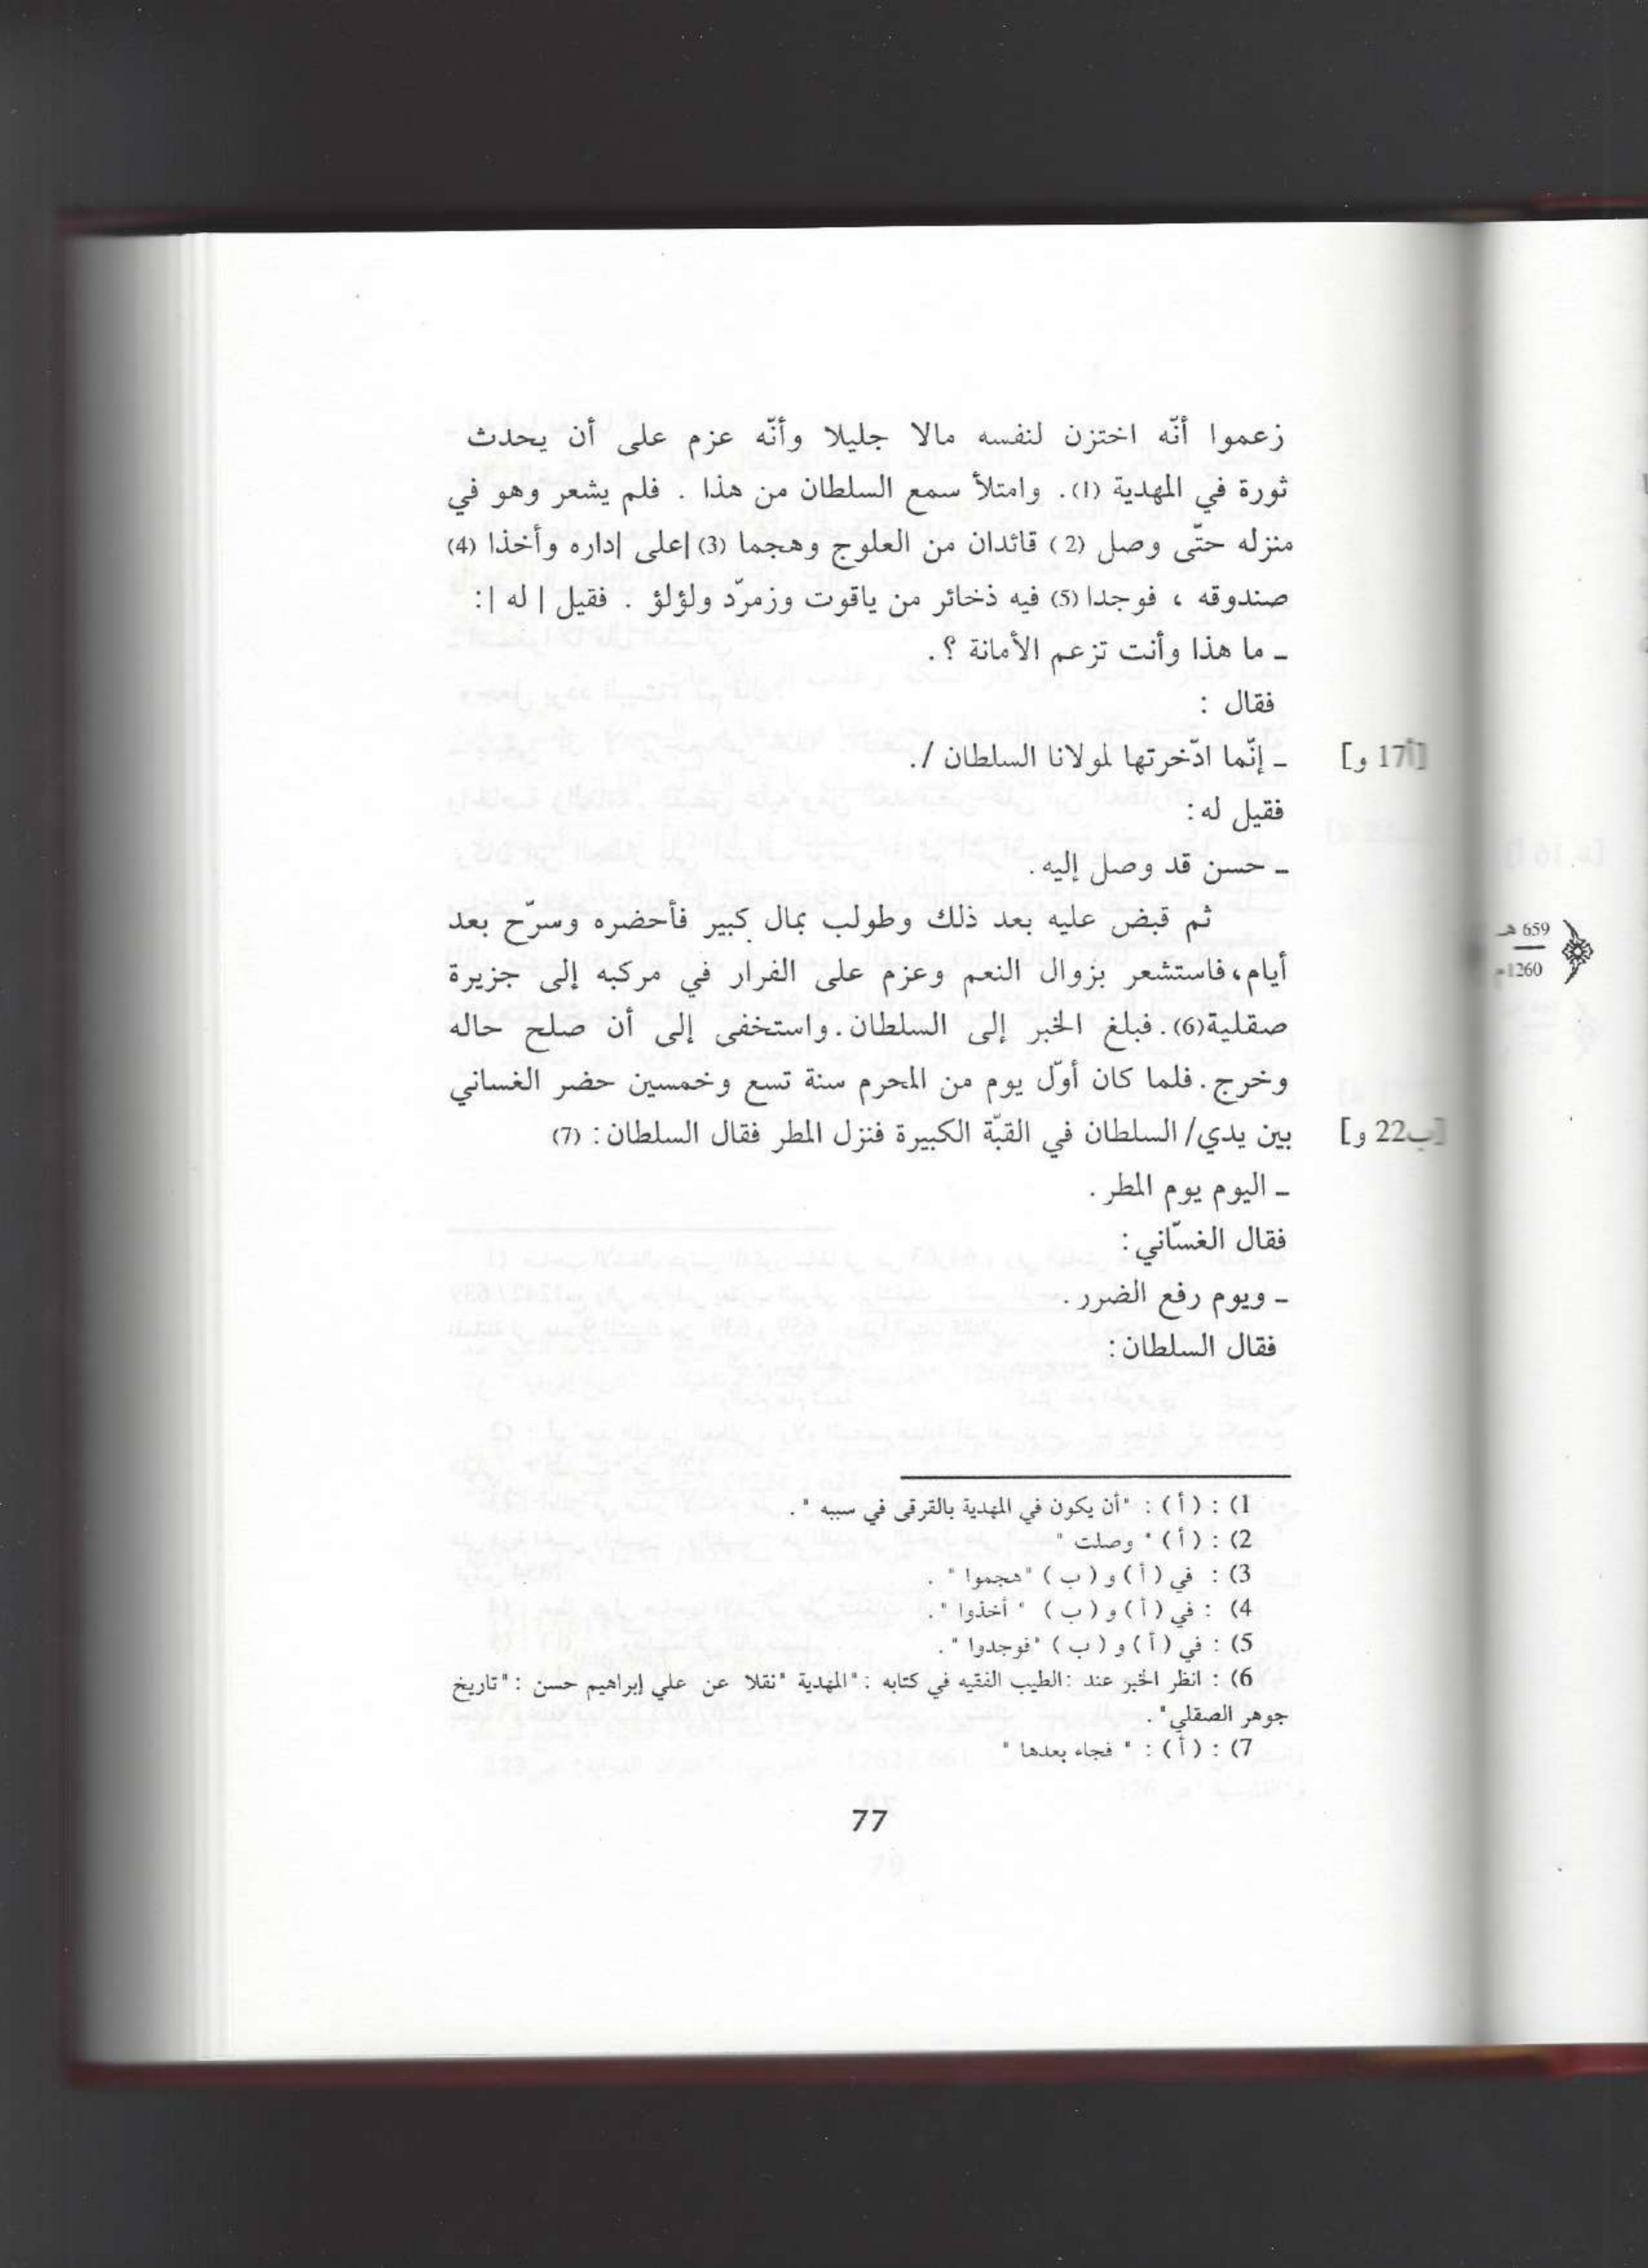 زعموا أنّه اختزن لنفسه مالا جليلا وأنّه عزم على أن يحدث
ثورة في المهدية (1). وامتلأ سمع السلطان من هذا . فلم يشعر وهو في
منزله حتّى وصل (2) قائدان من العلوج وهجما (3) |على |داره وأخذا (4)
صندوقه ، فوجدا (5) فيه ذخائر من ياقوت وزمرّد ولؤلؤ . فقيل | له |:
ـ ما هذا وأنت تزعم الأمانة ؟.
فقال :
ـ إنّما ادّخرتها لمولانا السلطان /.
[أ17 و]
فقيل له:
ـ حسن قد وصل إليه.
ثم قبض عليه بعد ذلك وطولب بمال كبير فأحضره وسرّح بعد
أيام، فاستشعر بزوال النعم وعزم على الفرار في مركبه إلى جزيرة
صقلية(6). فبلغ الخبر إلى السلطان. واستخفى إلى أن صلح حاله
وخرج. فلما كان أوّل يوم من المحرم سنة تسع وخمسين حضر الغساني
بين يدي/ السلطان في القبّة الكبيرة فنزل المطر فقال السلطان: (7)
[ب22 و]
ـ اليوم يوم المطر.
فقال الغسّاني:
ـ ويوم رفع الضرر.
فقال السلطان:
1) : (أ) : "أن يكون في المهدية بالقرقى في سببه ".
2) : (أ) " وصلت "
3) : في (أ) و (ب) "هجموا " .
4) : في (أ) و (ب) " أخذوا ".
5) : في (أ) و (ب) "فوجدوا ".
6) : انظر الخبر عند :الطيب الفقيه في كتابه : "المهدية "نقلا عن علي إبراهيم حسن : "تاريخ
جوهر الصقلي" .
7) : (أ) : " فجاء بعدها "
77
659 هـ
1260م